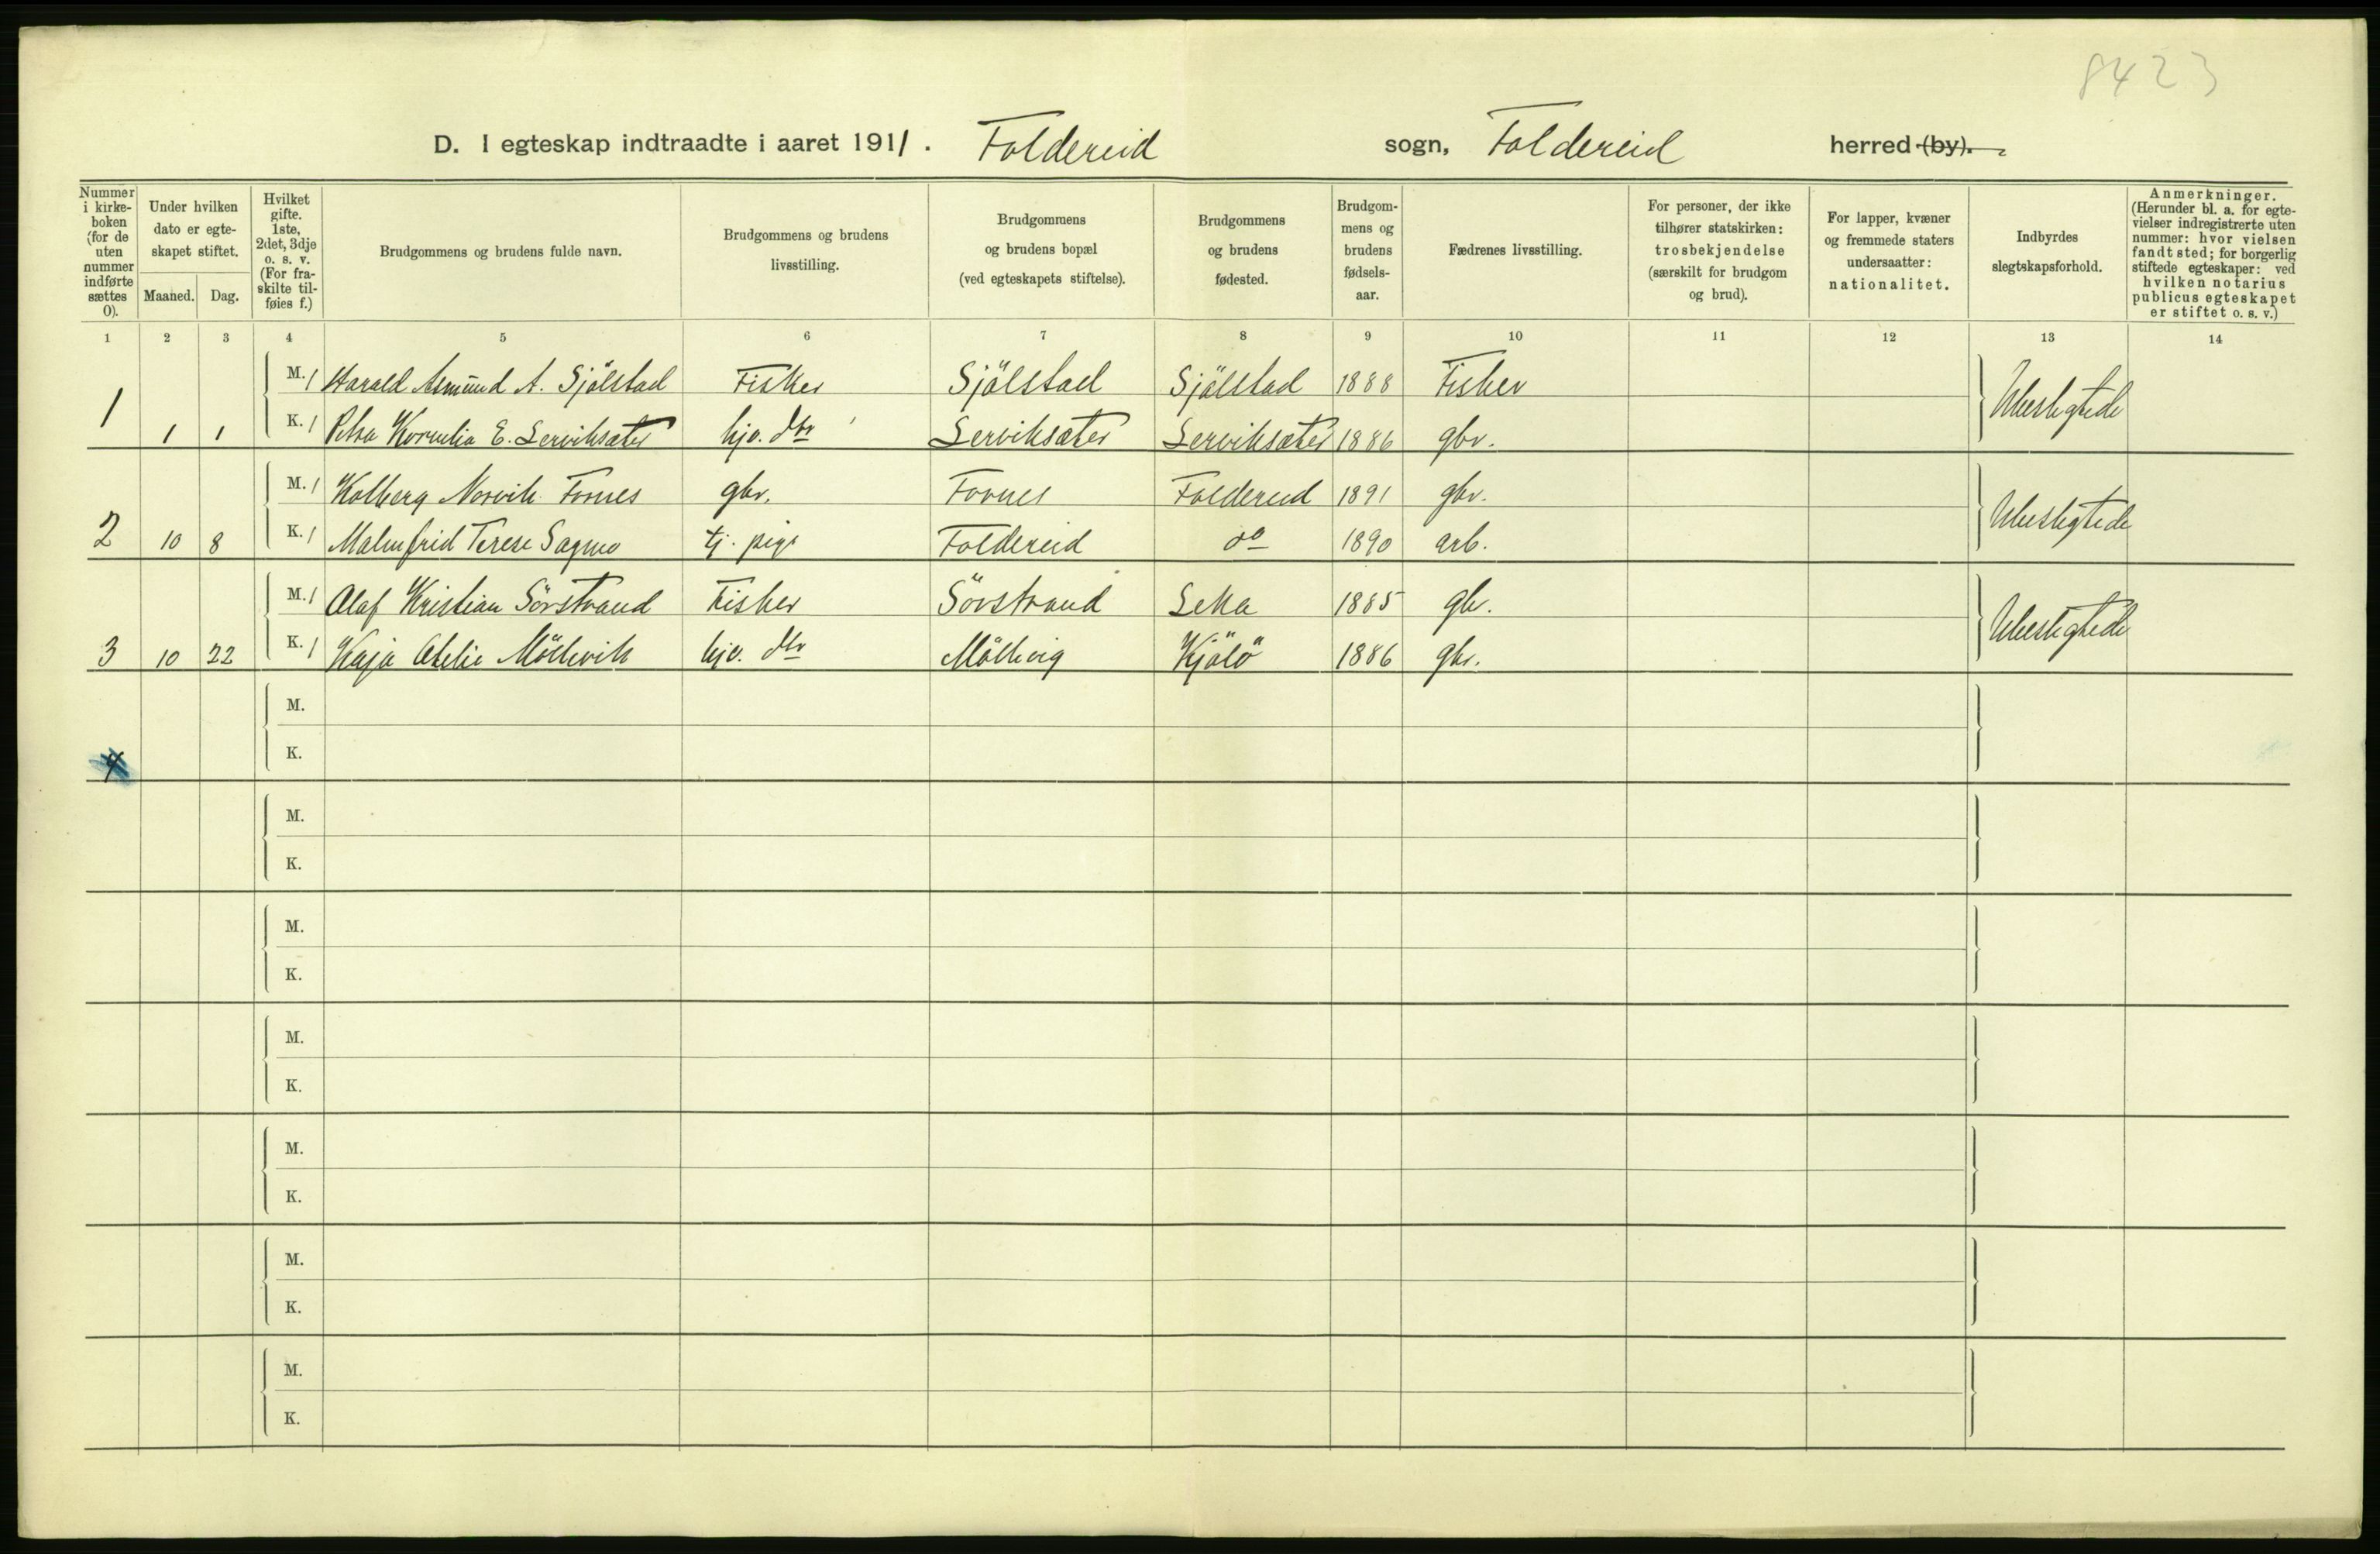 8423
D. I egteskap indtraadte i aaret 1911. Foldereid sogn, Foldereid herred (by).
Nummer i kirkeboken (for de uten nummer indførte sættes 0).
Under hvilken dato er egteskapet stiftet.
Maaned. Dag.
Hvilket gifte. 1ste, 2det, 3dje o. s. v. (For fraskilte tilføies f.)
Brudgommens og brudens fulde navn.
Brudgommens og brudens livsstilling.
Brudgommens og brudens bopæl (ved egteskapets stiftelse).
Brudgommens og brudens fødested.
Brudgommens og brudens fødselsaar.
Fædrenes livsstilling.
For personer, der ikke tilhører statskirken: trosbekjendelse (særskilt for brudgom og brud).
For lapper, kvæner og fremmede staters undersaatter: nationalitet.
Indbyrdes slegtskapsforhold.
Anmerkninger. (Herunder bl. a. for egtevielser indregistrerte uten nummer: hvor vielsen fandt sted; for borgerlig stiftede egteskaper: ved hvilken notarius publicus egteskapet er stiftet o. s. v.)
1 2 3 4 5 6 7 8 9 10 11 12 13 14
M. 1 Harald Asmund A. Sjölstad Fisker Sjölstad Sjölstad 1888 Fisker Ubeslegtede
1 1 1 K. 1 Petra Kornelia E. Lerviksæter hjv. dtr Lerviksæter Lerviksæter 1886 gbr.
M. 1 Kolberg Norvik Fornes gbr. Fornes Foldereid 1891 gbr. Ubeslegtede
2 10 8 K. 1 Malmfrid Terese Sagmo tj. pige Foldereid do 1890 arb.
M. 1 Olaf Kristian Sörstrand Fisker Sörstrand Leka 1885 gbr. Ubeslegtede
3 10 22 K. 1 Kaja Otelie Möllevik hjv. dtr Möllevig Kjölö 1886 gbr.
M.
4 K.
M.
K.
M.
K.
M.
K.
M.
K.
M.
K.
M.
K.